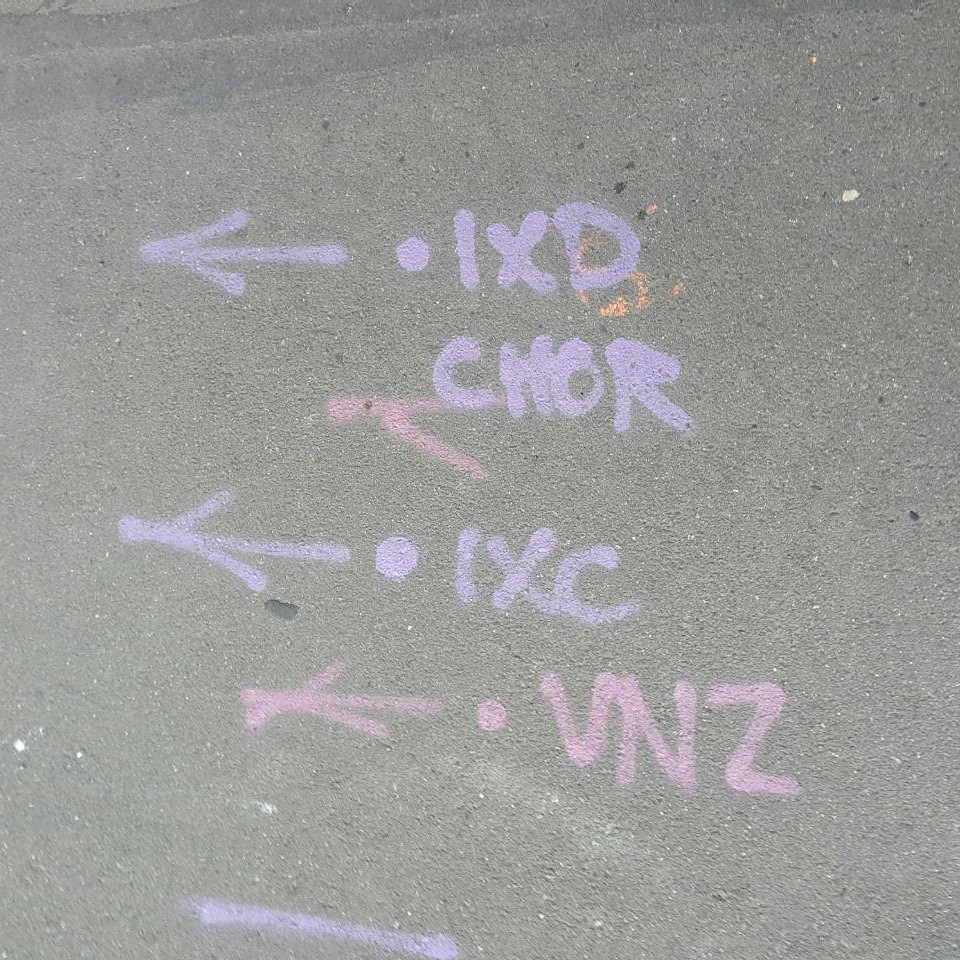 IXD
CHOR
IXC
VNZ